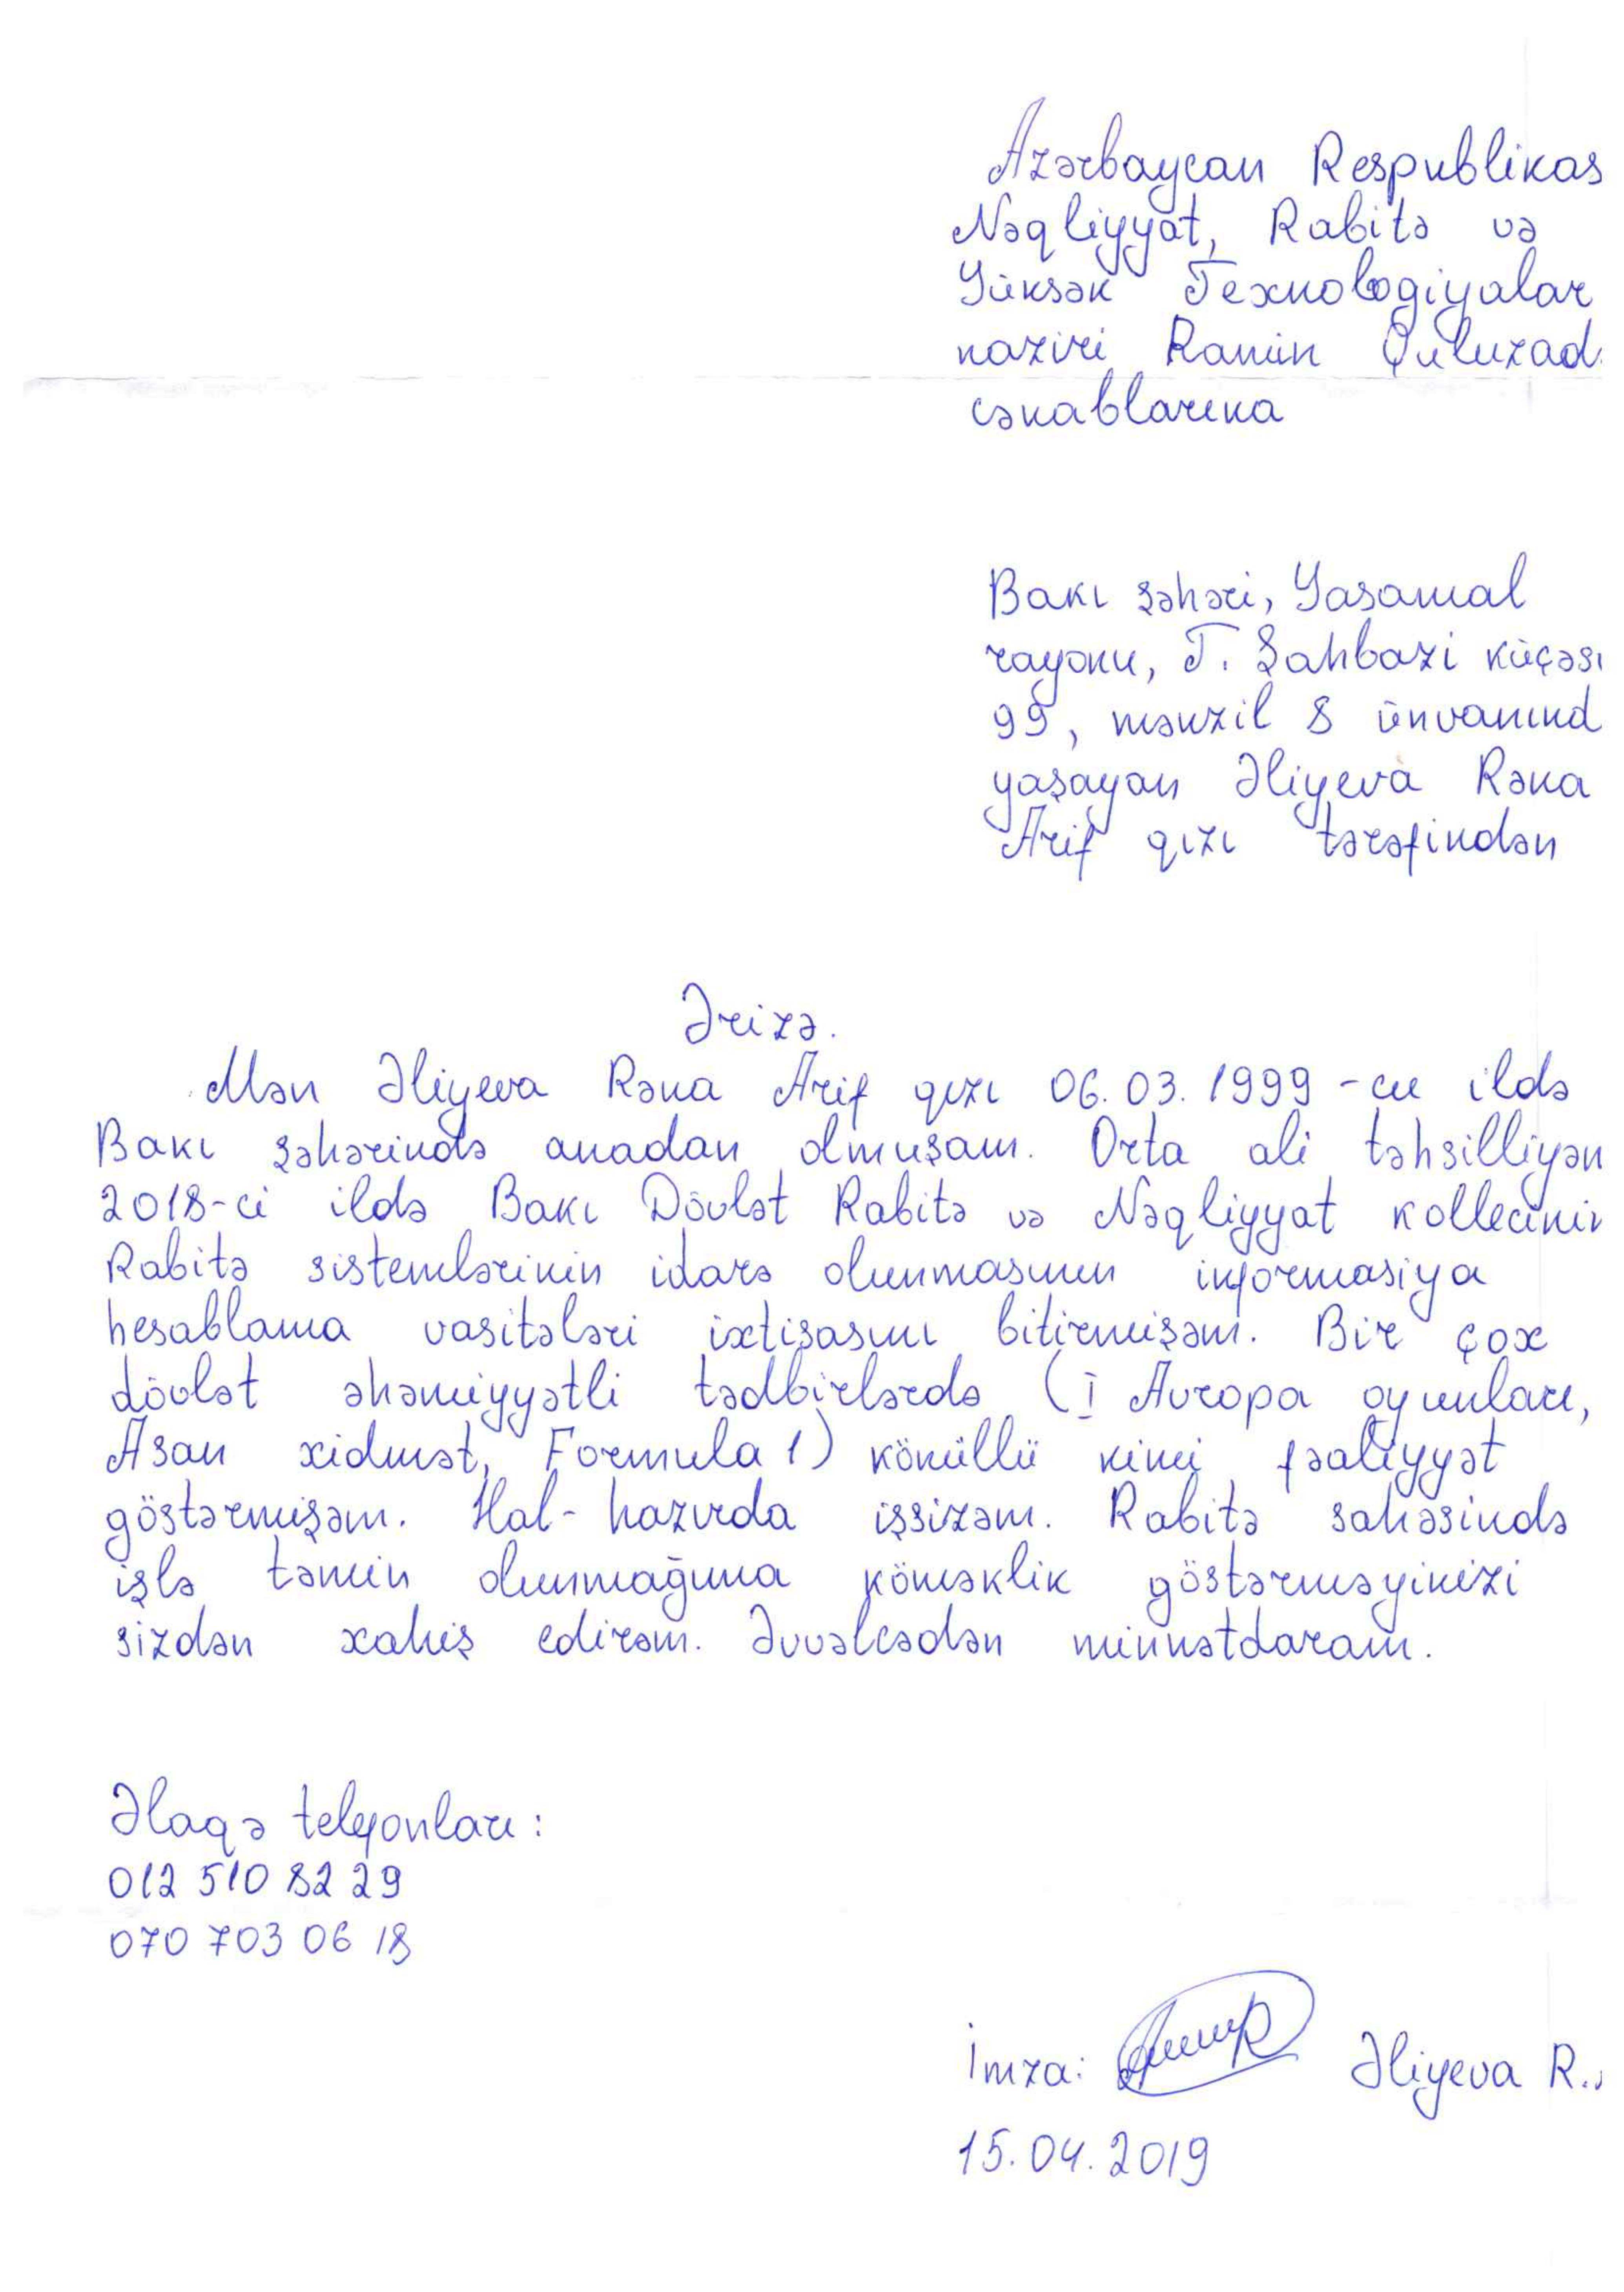 Azərbaycan Respublikas
Nəqliyyat, Rabitə və
Yüksək Texnologiyalar
naziri Ramin Quluzad
cənablarına
Bakı şəhəri, Yasamal
rayonu, T. Şahbazi küçəsi
99, mənzil 8 ünvanınd
yaşayan Əliyeva Rəna
Arif qızı tərəfindən
Ərizə.
Mən Əliyeva Rəna Arif qızı 06.03.1999-cu ildə
Bakı şəhərində anadan olmuşam. Orta ali təhsilliyəm
2018-ci ildə Bakı Dövlət Rabitə və Nəqliyyat kollecinin
Rabitə sistemlərinin idarə olunmasının informasiya
hesablama vasitələri ixtisasını bitirmişəm. Bir çox
dövlət əhəmiyyətli tədbirlərdə (I Avropa oyunları,
Asan xidmət, Formula 1) könüllü kimi fəaliyyət
göstərmişəm. Hal-hazırda işsizəm. Rabitə sahəsində
işlə təmin olunmağıma köməklik göstərməyinizi
sizdən xahiş edirəm. Əvvəlcədən minnətdaram.
Əlaqə telefonları:
012 510 82 29
070 703 06 18
İmza: Əliyeva R.
15.04.2019